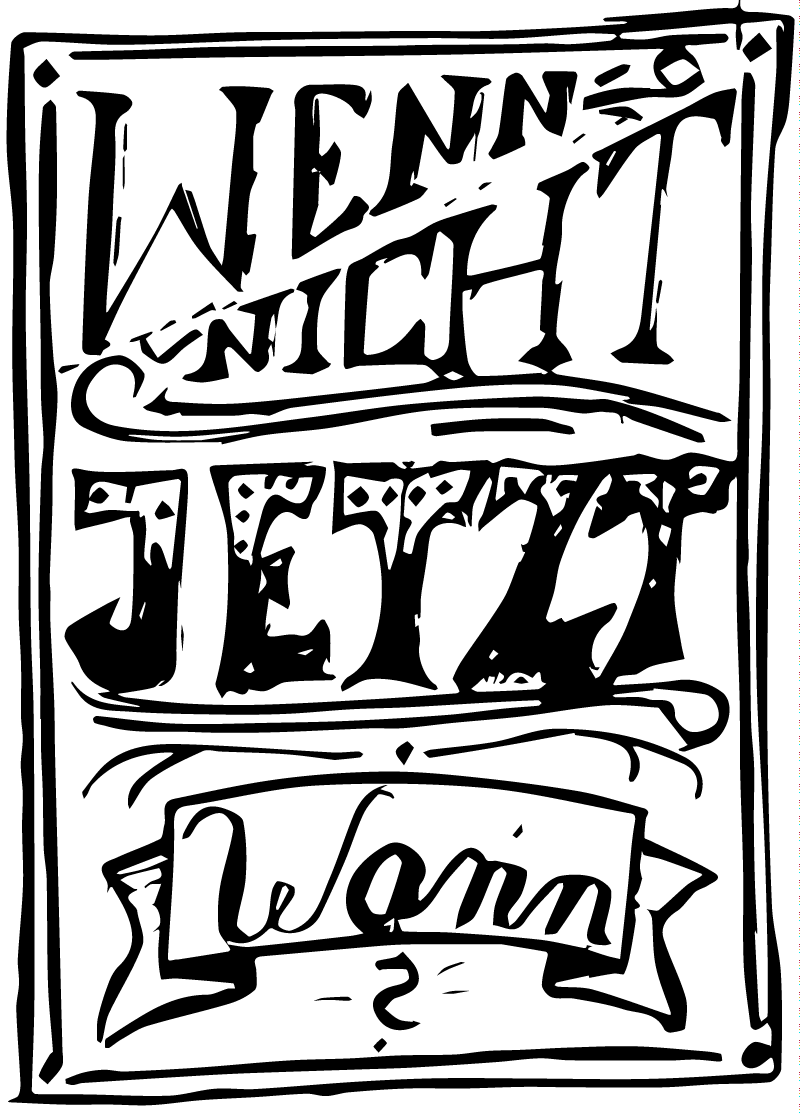 WENN
NICHT
JETZT
Wann
?